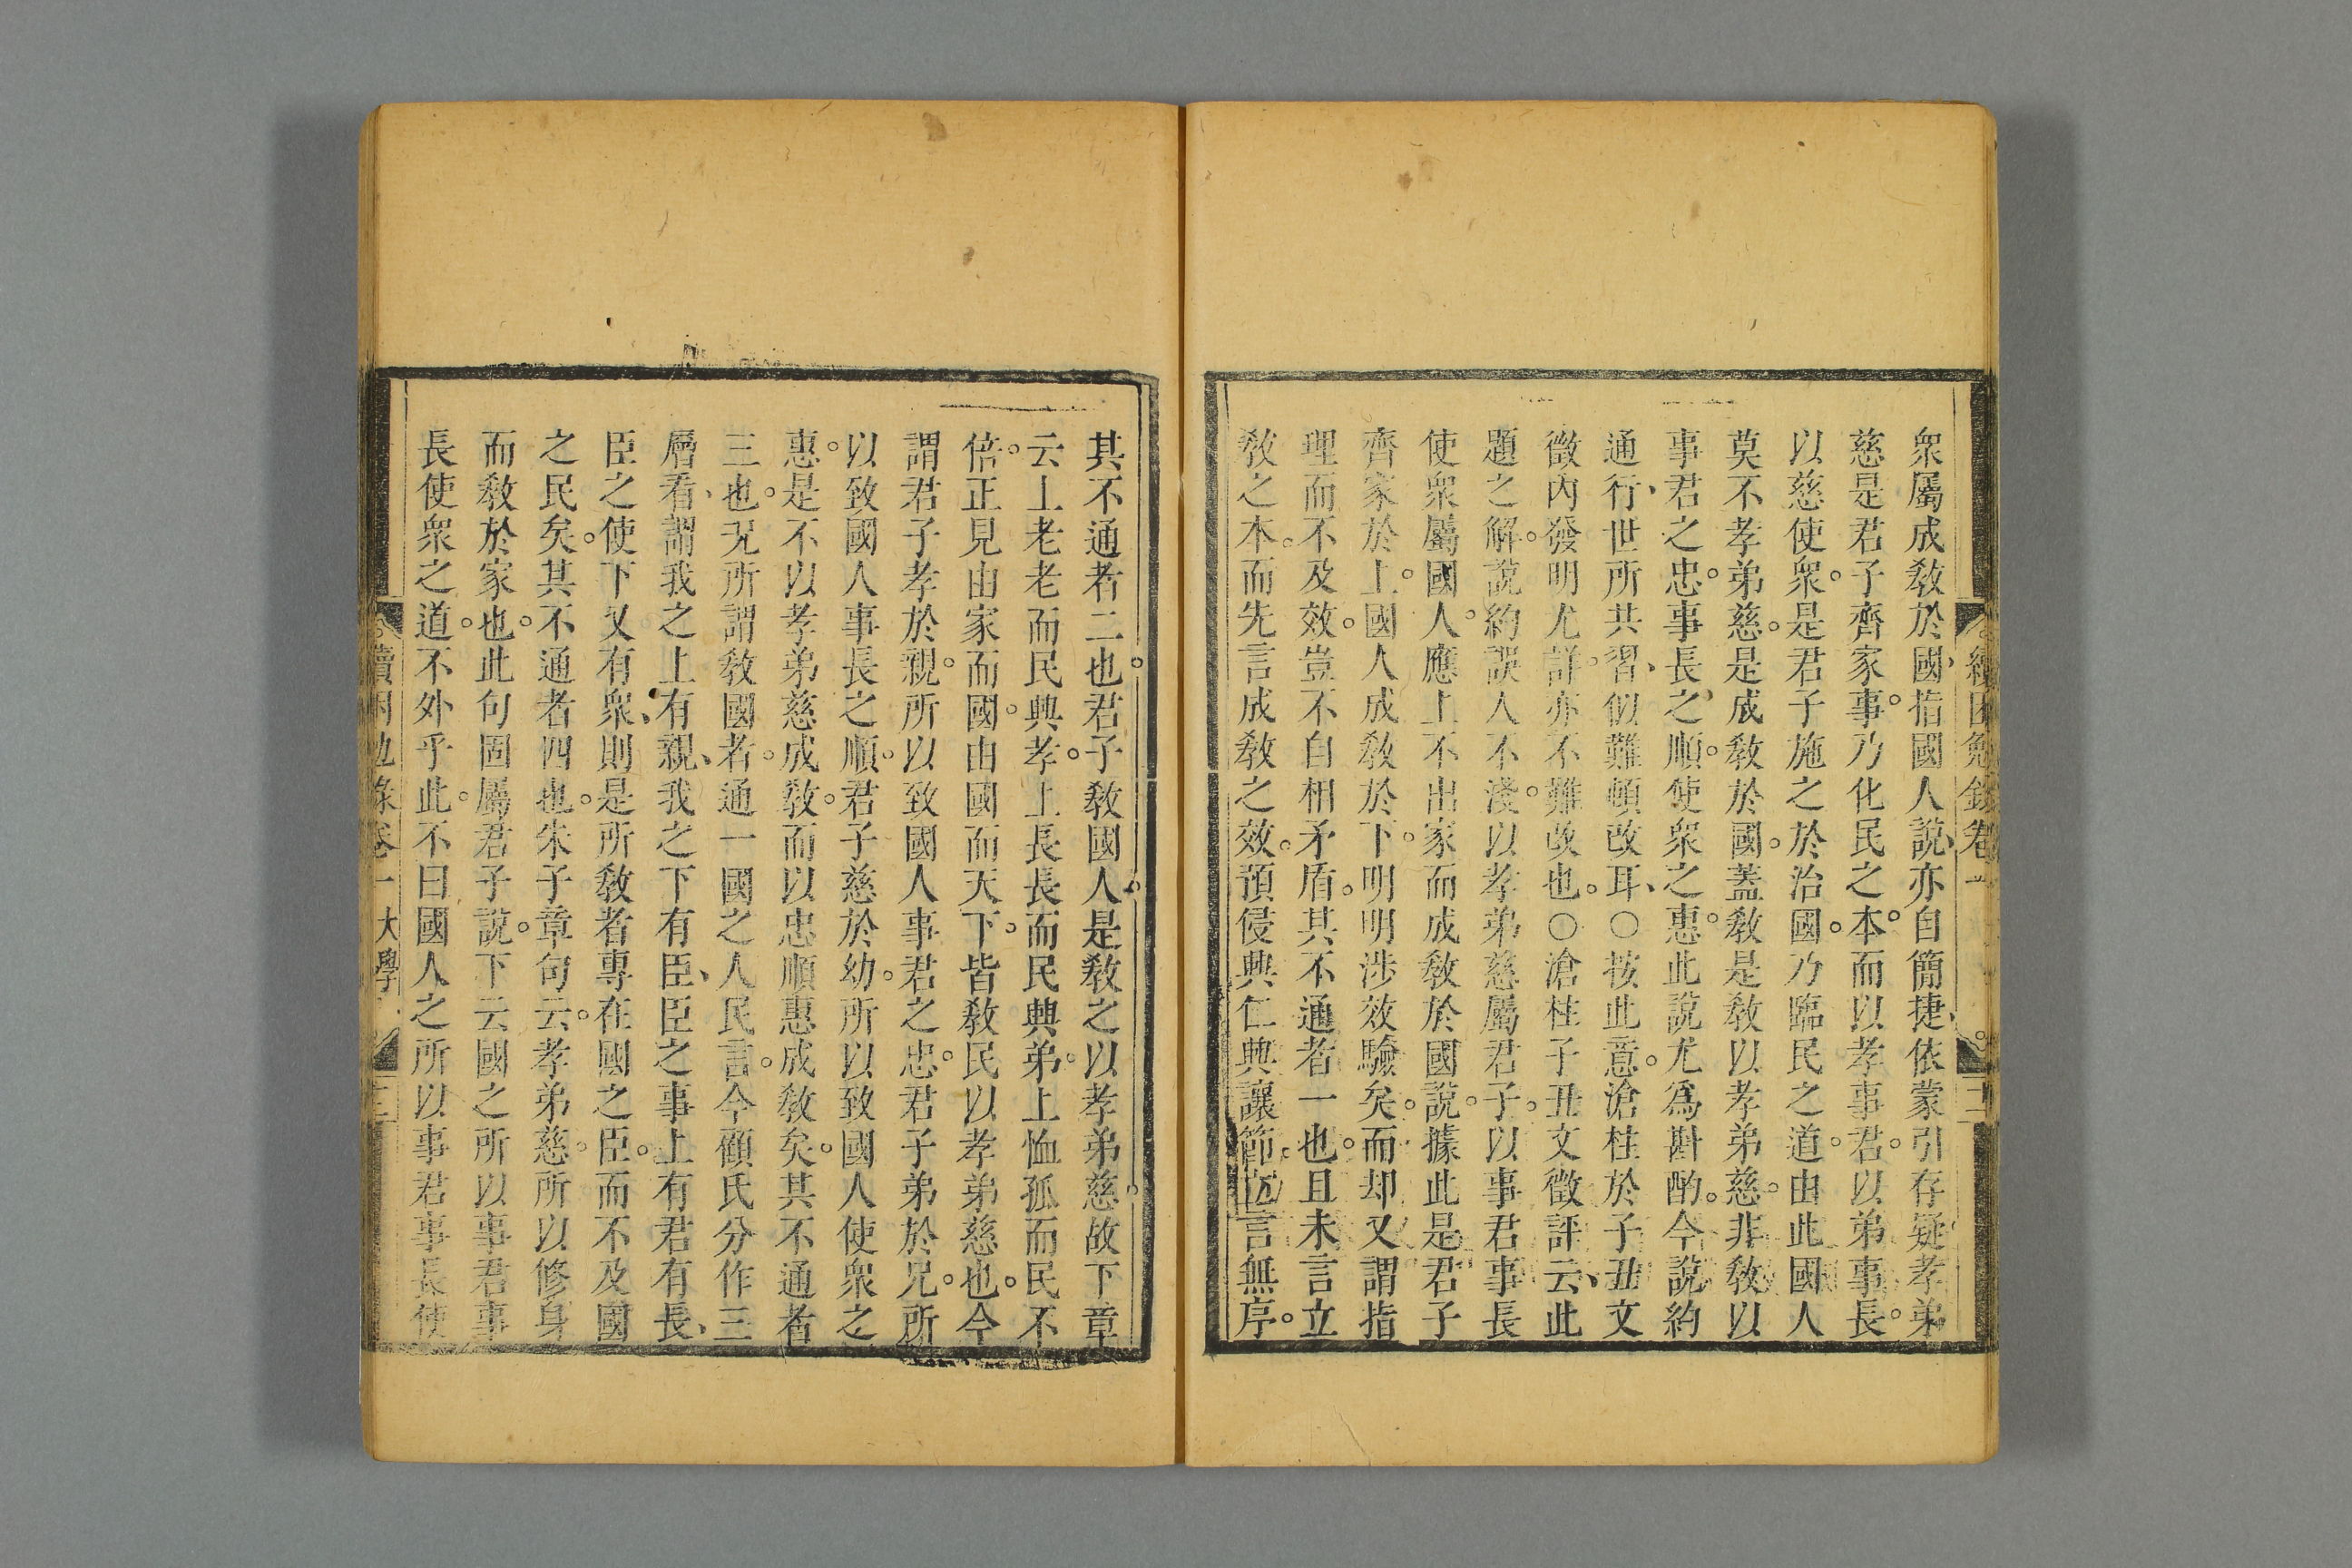 衆屬成敎於國指國人說亦自簡捷依蒙引存疑孝弟
慈是君子齊家事乃化民之本而以孝事君以弟事長
以慈使衆是君子施之於治國乃臨民之道由此國人
莫不孝弟慈是成敎於國蓋敎是敎以孝弟慈非敎以
事君之忠事長之順使衆之惠此說尤爲斟酌今說約
通行世所共習似難頓改耳○按此意滄柱於子丑文
徵內發明尤詳亦不難改也○滄柱子丑文徵評云此
題之解說約誤人不淺以孝弟慈屬君子以事君事長
使衆屬國人應上不出家而成敎於國說據此是君子
齊家於上國人成敎於下明明涉效驗矣而却又謂指
理而不及效豈不自相矛盾其不通者一也且未言立
敎之本而先言成敎之效預侵興仁興讓節立言無序
其不通者二也君子敎國人是敎之以孝弟慈故下章
云上老老而民興孝上長長而民興弟上恤孤而民不
倍正見由家而國由國而天下皆敎民以孝弟慈也今
謂君子孝於親所以致國人事君之忠君子弟於兄所
以致國人事長之順君子慈於幼所以致國人使衆之
惠是不以孝弟慈成敎而以忠順惠成敎矣其不通者
三也况所謂敎國者通一國之人民言今顧氏分作三
層看謂我之上有親我之下有臣臣之事上有君有長
臣之使下又有衆則是所敎者專在國之臣而不及國
之民矣其不通者四也朱子章句云孝弟慈所以修身
而敎於家也此句固屬君子說下云國之所以事君事
長使衆之道不外乎此不曰國人之所以事君事長使
續困勉錄卷一 大學